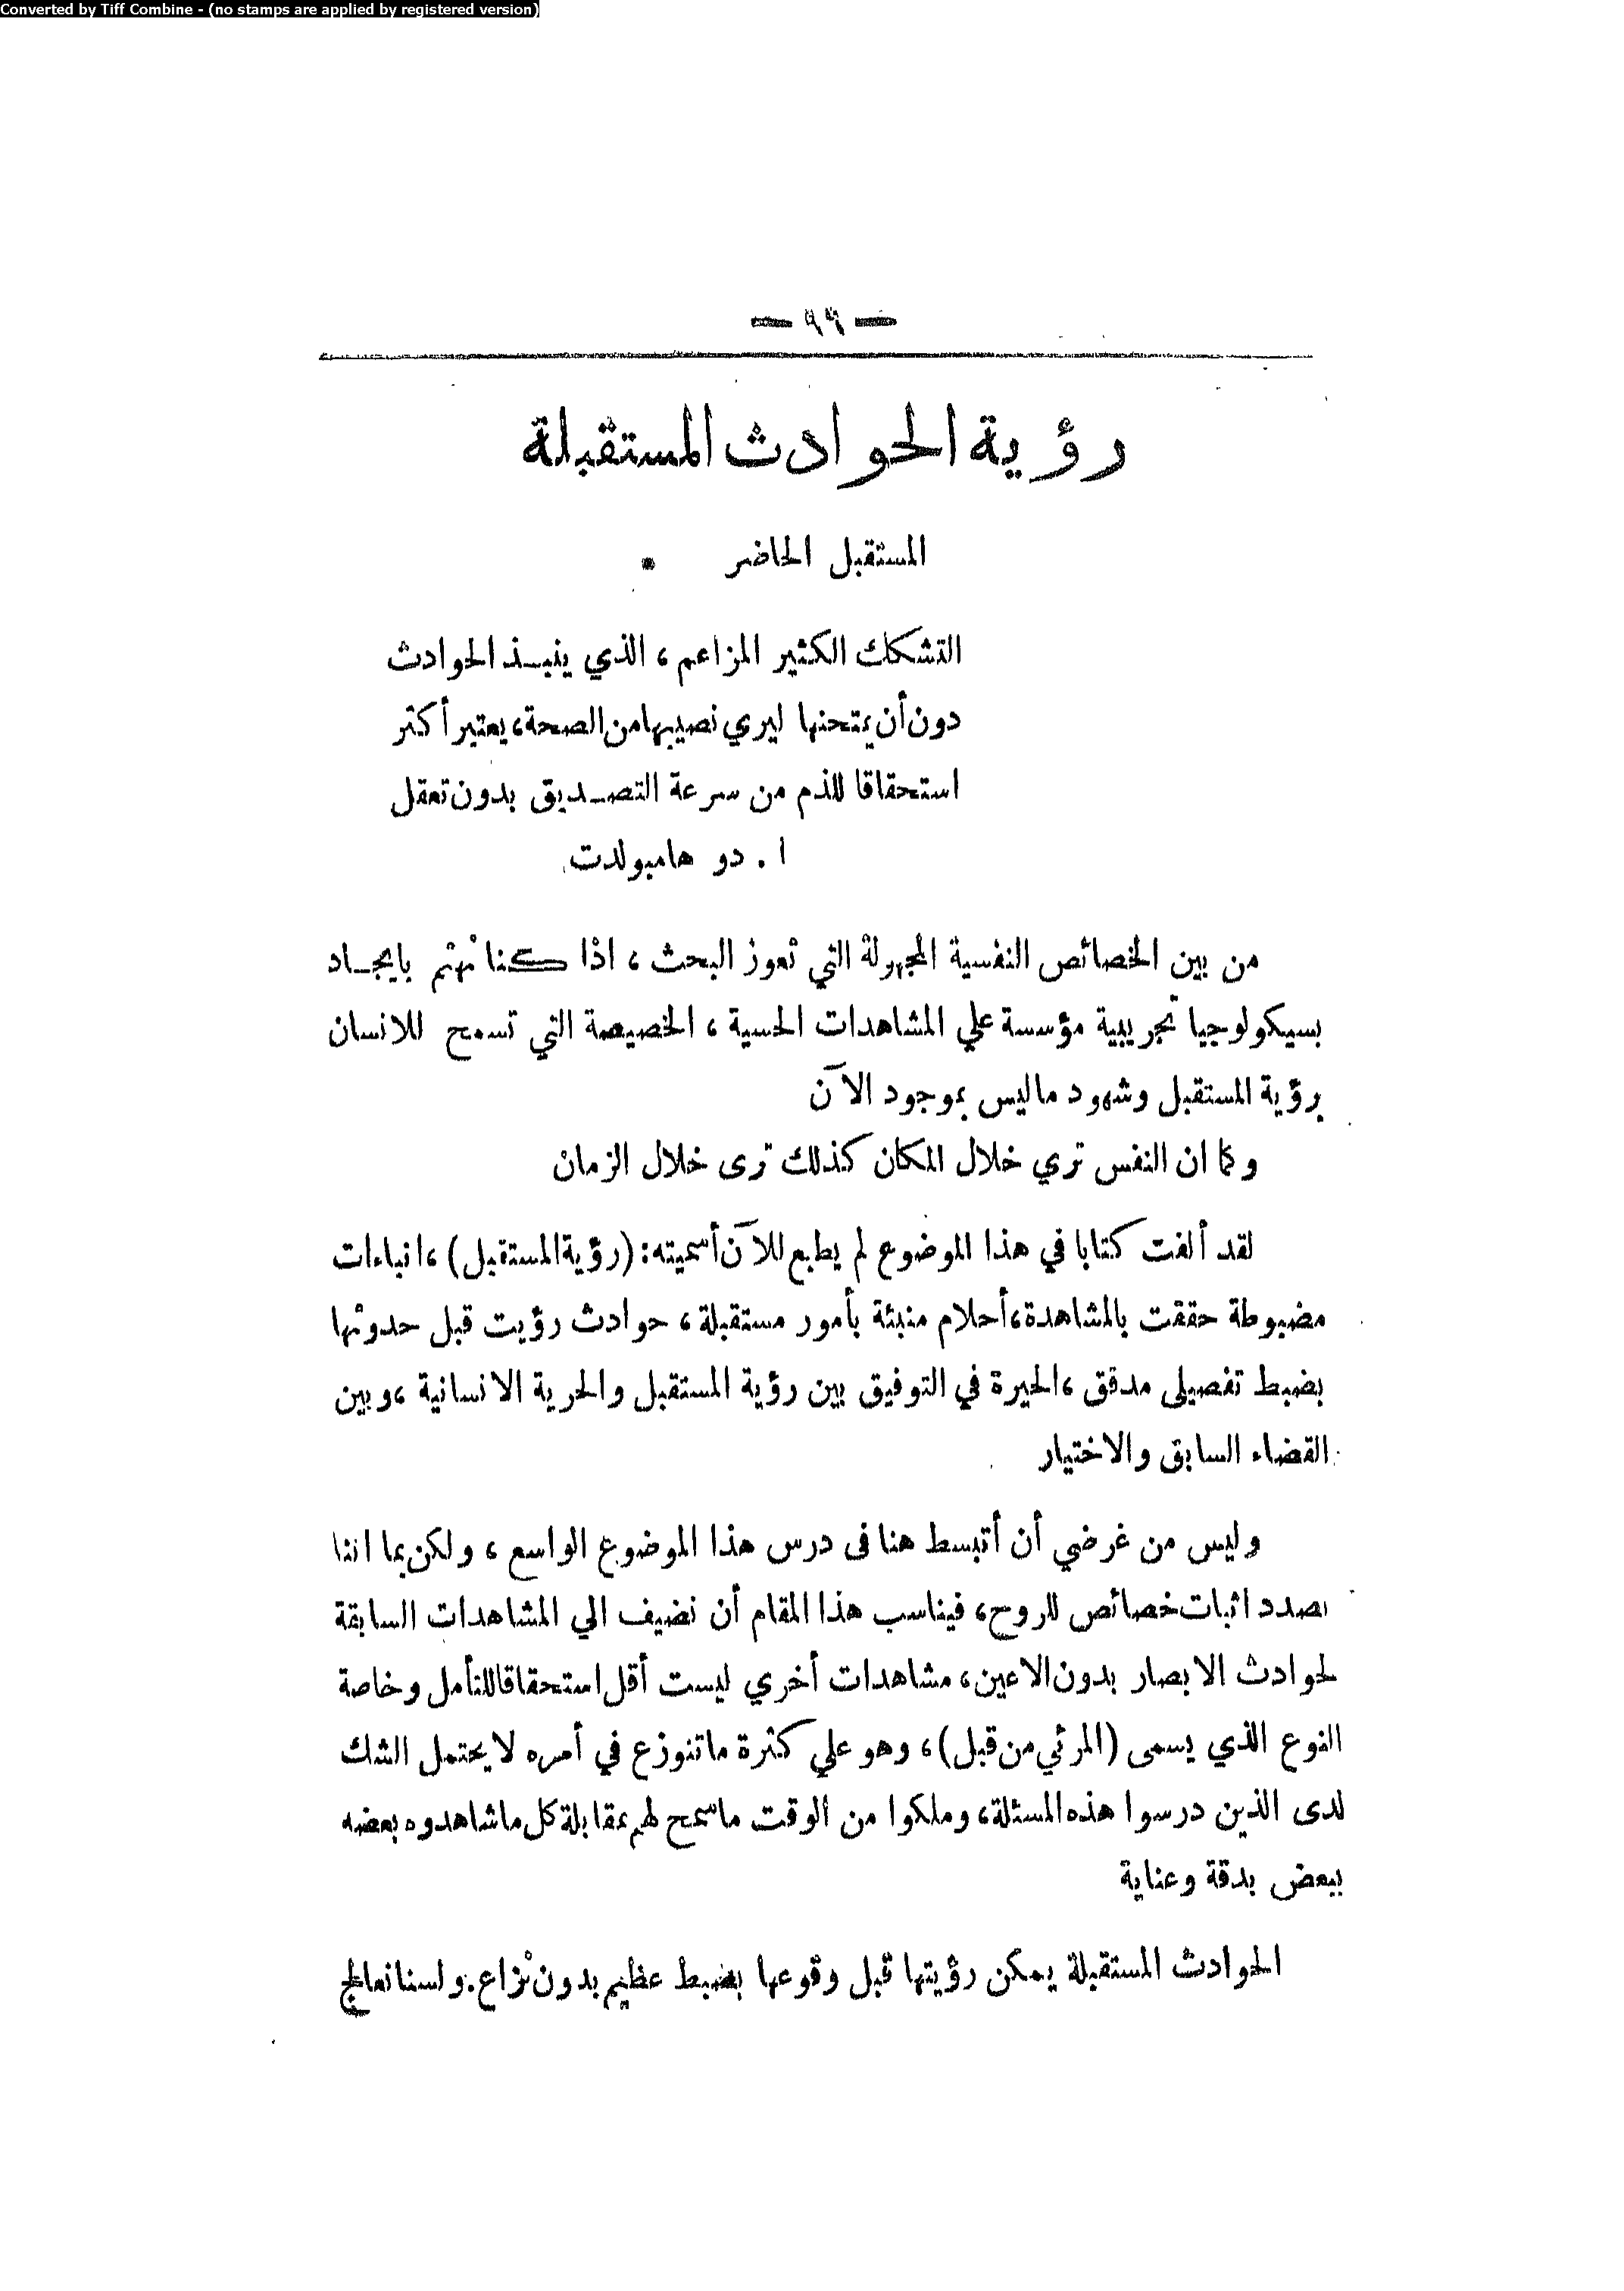 Converted by Tiff Combine - (no stamps are applied by registered version)
— ٩٩ —
رؤية الحوادث المستقبلة
المستقبل الحاضر •
التشكك الكثير المزاعم، الذي ينبذ الحوادث
دون أن يمتحنها ليري نصيبها من الصحة، يعتبر أكثر
استحقاقا للذم من سرعة التصديق بدون تعقل
ا . دو هامبولدت
من بين الخصائص النفسية المجهولة التي تعوز البحث، اذا كنا نهتم بايجاد
بسيكولوجيا تجريبية مؤسسة علي المشاهدات الحسية، الخصيصة التي تسمح للانسان
برؤية المستقبل وشهود ماليس بموجود الآن
وكما ان النفس تري خلال المكان كذلك ترى خلال الزمان
لقد ألفت كتابا في هذا الموضوع لم يطبع للآن أسميته: (رؤية المستقبل)، انباءات
مضبوطة حققت بالمشاهدة، أحلام منبئة بأمور مستقبلة، حوادث رؤيت قبل حدوثها
بضبط تفصيلى مدقق، الحيرة في التوفيق بين رؤية المستقبل والحرية الانسانية، وبين
القضاء السابق والاختيار
وليس من غرضي أن أتبسط هنا فى درس هذا الموضوع الواسع، ولكن بما اننا
بصدد اثبات خصائص للروح، فيناسب هذا المقام أن نضيف الي المشاهدات السابقة
لحوادث الابصار بدون الاعين، مشاهدات أخري ليست أقل استحقاقا للتأمل وخاصة
النوع الذي يسمى (المرئي من قبل)، وهو علي كثرة ماتنوزع في أمره لا يحتمل الشك
لدى الذين درسوا هذه المسئلة، وملكوا من الوقت ماسمح لهم بمقابلة كل ماشاهدوه بعضه
ببعض بدقة وعناية
الحوادث المستقبلة يمكن رؤيتها قبل وقوعها بضبط عظيم بدون نزاع. ولسنا نعالج